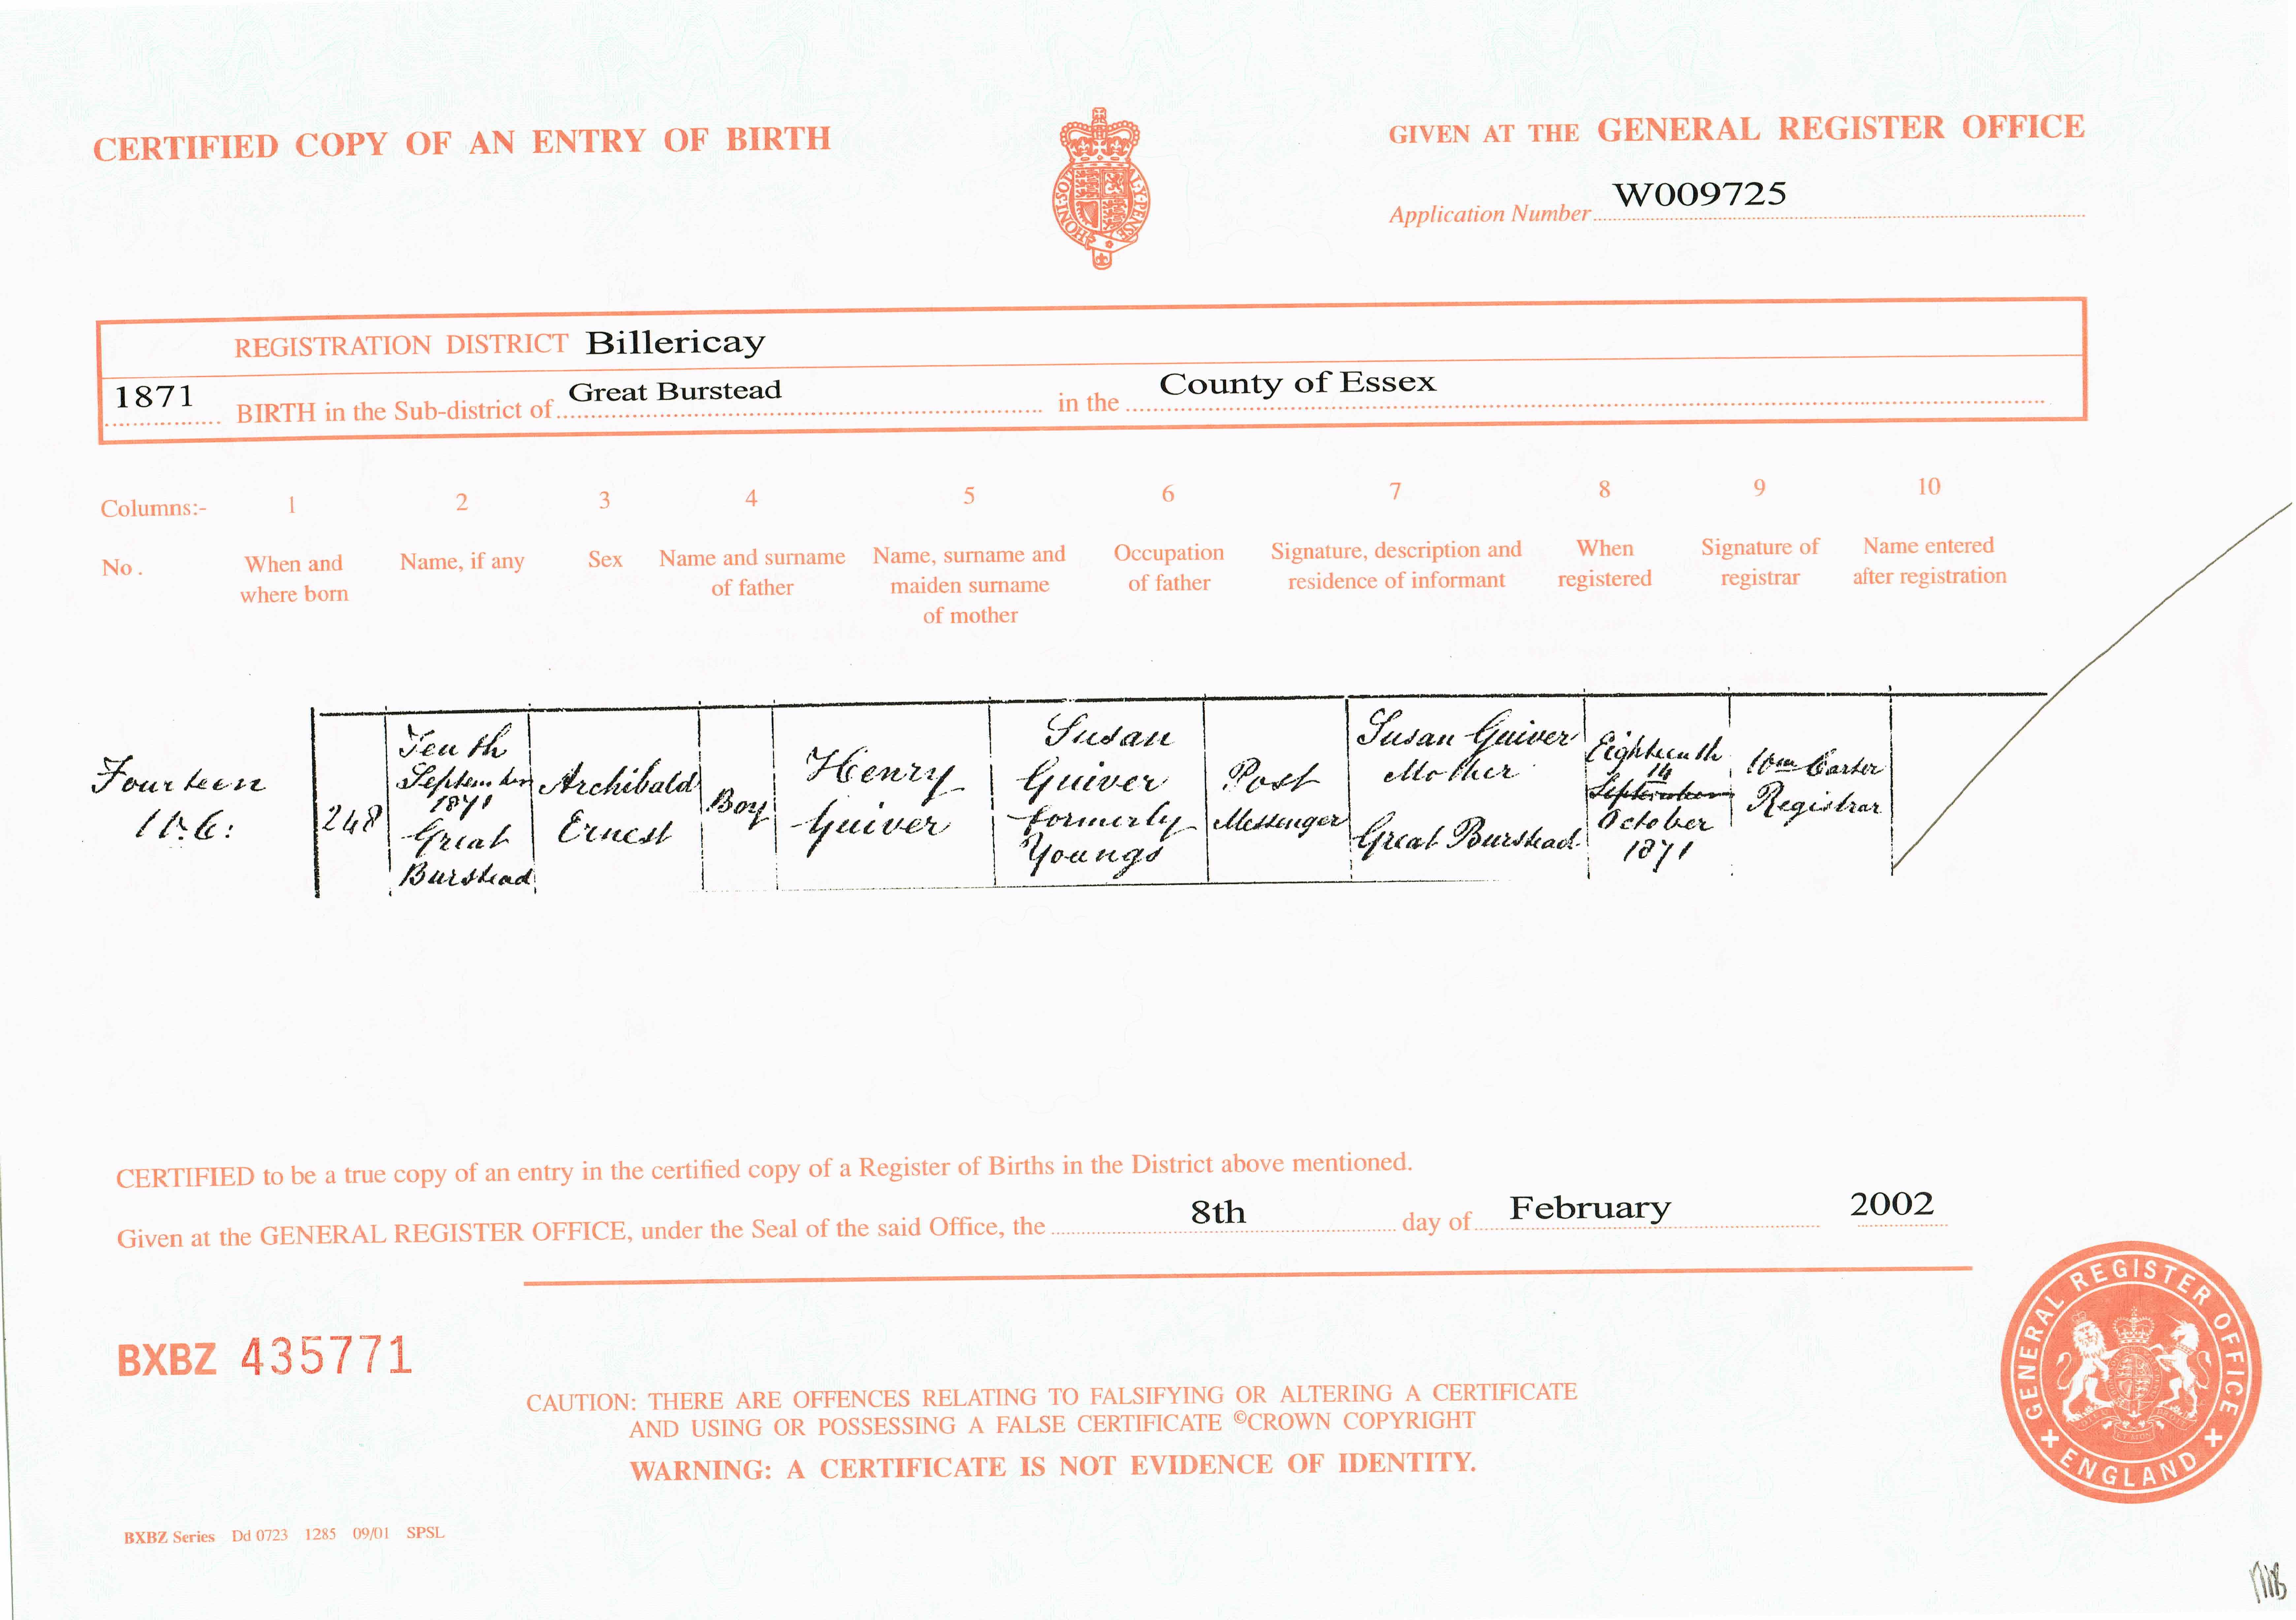 CERTIFIED COPY OF AN ENTRY OF BIRTH
GIVEN AT THE GENERAL REGISTER OFFICE
Application Number W009725
HONI·SOI AL·Y·PENSE
REGISTRATION DISTRICT Billericay
1871 BIRTH in the Sub-district of Great Burstead in the County of Essex
Columns:- 1 2 3 4 5 6 7 8 9 10
No. When and where born
Name, if any
Sex
Name and surname of father
Name, surname and maiden surname of mother
Occupation of father
Signature, description and residence of informant
When registered
Signature of registrar
Name entered after registration
Fourteen
W. C:
248
Tenth
September
1871
Great
Burstead
Archibald
Ernest
Boy
Henry
Guiver
Susan
Guiver
formerly
Youngs
Post
Messenger
Susan Guiver
Mother
Great Burstead
Eighteenth
14
September
October
1871
Wm Carter
Registrar
CERTIFIED to be a true copy of an entry in the certified copy of a Register of Births in the District above mentioned.
Given at the GENERAL REGISTER OFFICE, under the Seal of the said Office, the 8th day of February 2002
BXBZ 435771
CAUTION: THERE ARE OFFENCES RELATING TO FALSIFYING OR ALTERING A CERTIFICATE
AND USING OR POSSESSING A FALSE CERTIFICATE ©CROWN COPYRIGHT
WARNING: A CERTIFICATE IS NOT EVIDENCE OF IDENTITY.
GENERAL REGISTER OFFICE
ENGLAND
BXBZ Series Dd 0723 1285 09/01 SPSL